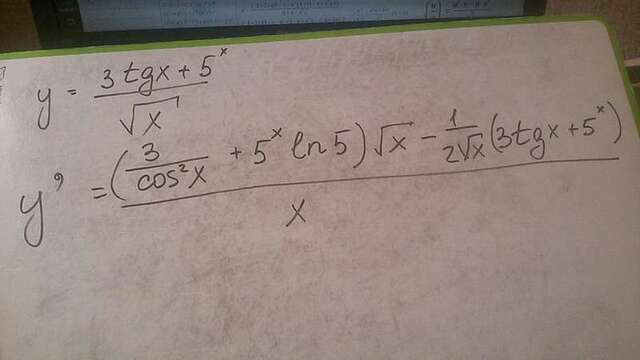 y = (3 tgx + 5^x) / √x
y' = ((3 / cos²x + 5^x ln 5) √x − 1 / (2√x) (3tgx + 5^x)) / x